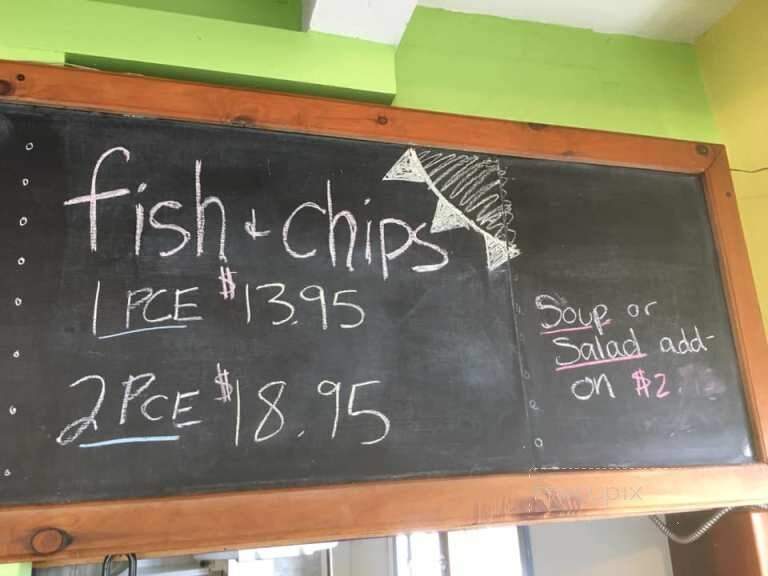 fish & chips
1 PCE $13.95
2 PCE $18.95
Soup or
Salad add-
on $2